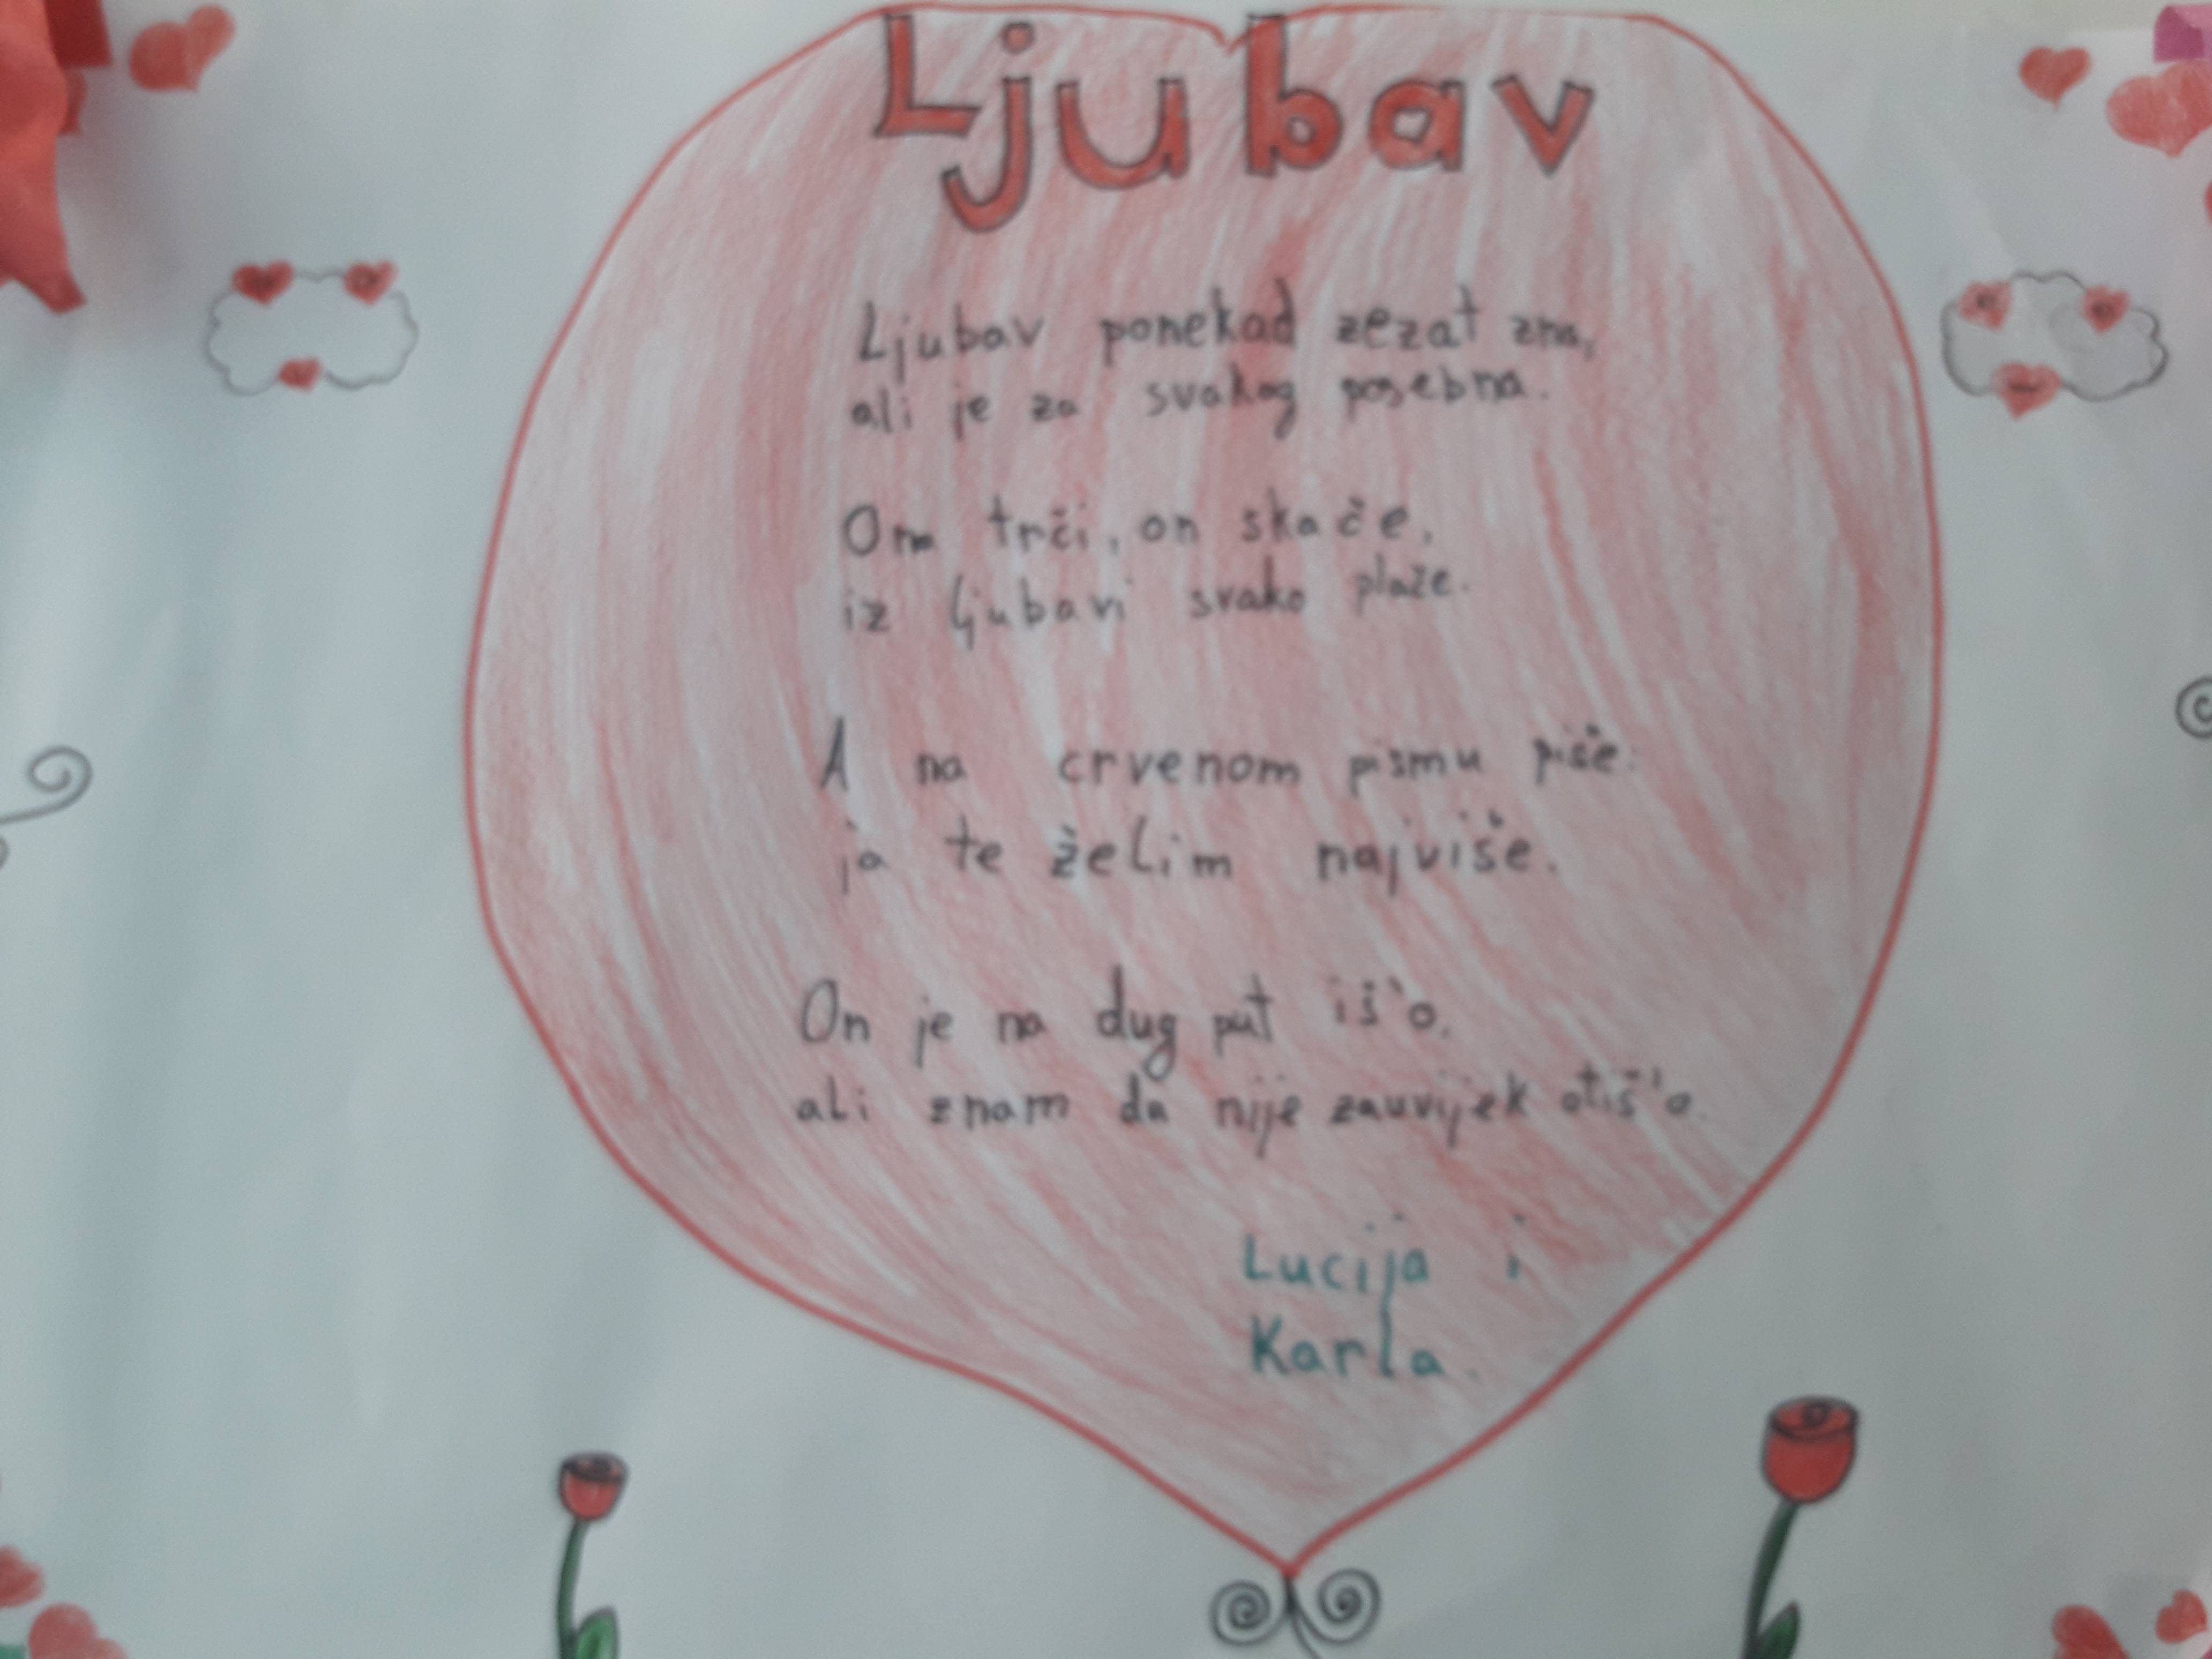 Ljubav
Ljubav ponekad zezat zna,
ali je za svakog posebna.
Ona trči, on skače,
iz ljubavi svako plače.
A na crvenom pismu piše:
ja te želim najviše.
On je na dug put iš'o,
ali znam da nije zauvijek otiš'o.
Lucija i
Karla.